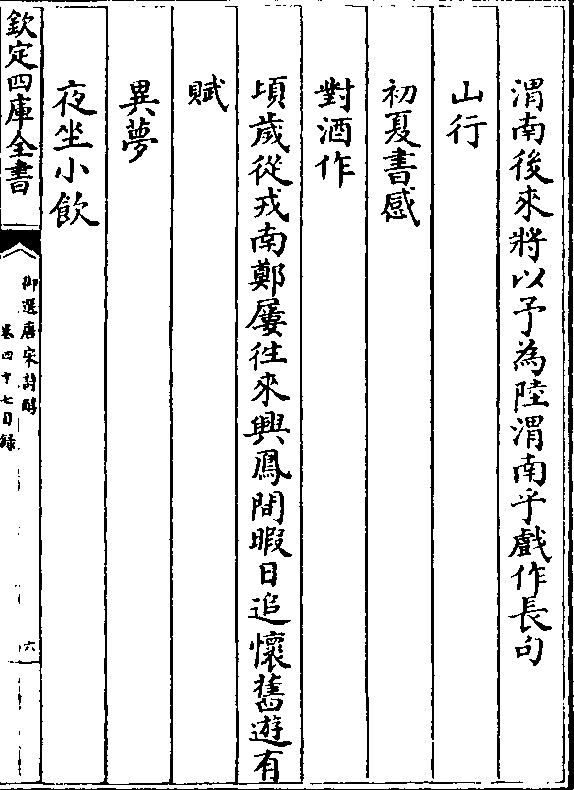 渭南後來將以予為陸渭南乎戲作長句
山行
初夏書感
對酒作
頃歲從戎南鄭屢往來興鳳間暇日追懷舊遊有
賦
異夢
夜坐小飲
欽定四庫全書
御選唐宋詩醇
卷四十七目錄
六